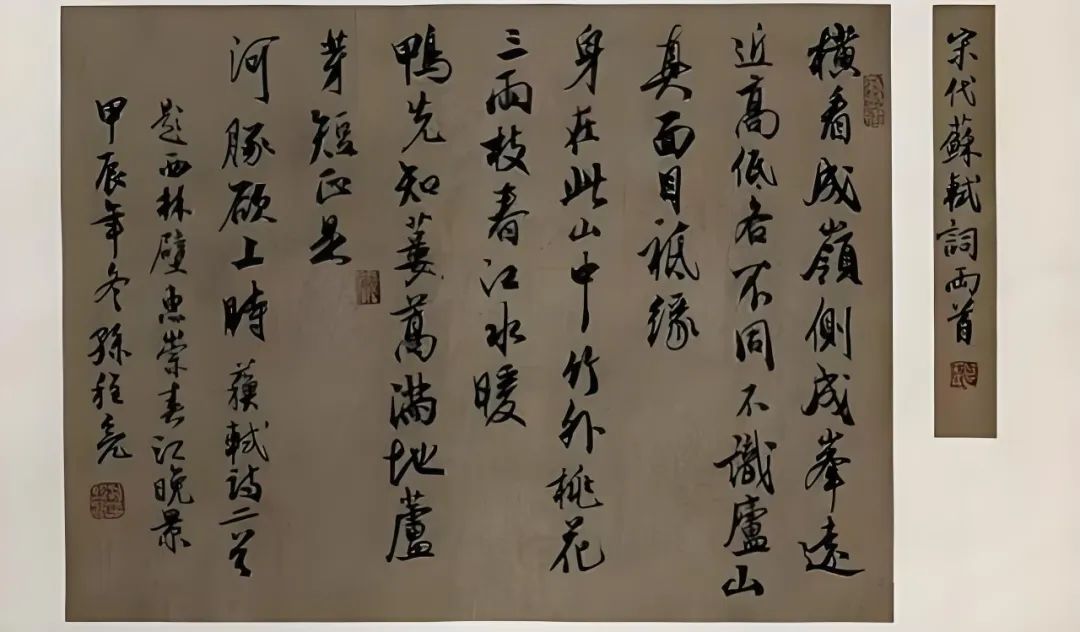 宋代蘇軾詞兩首
橫看成嶺側成峯遠
近高低各不同不識廬山
真面目祗緣
身在此山中竹外桃花
三兩枝春江水暖
鴨先知蔞蒿滿地蘆
芽短正是
河豚欲上時蘇軾詩二首
題西林壁惠崇春江晚景
甲辰年冬孫程亮